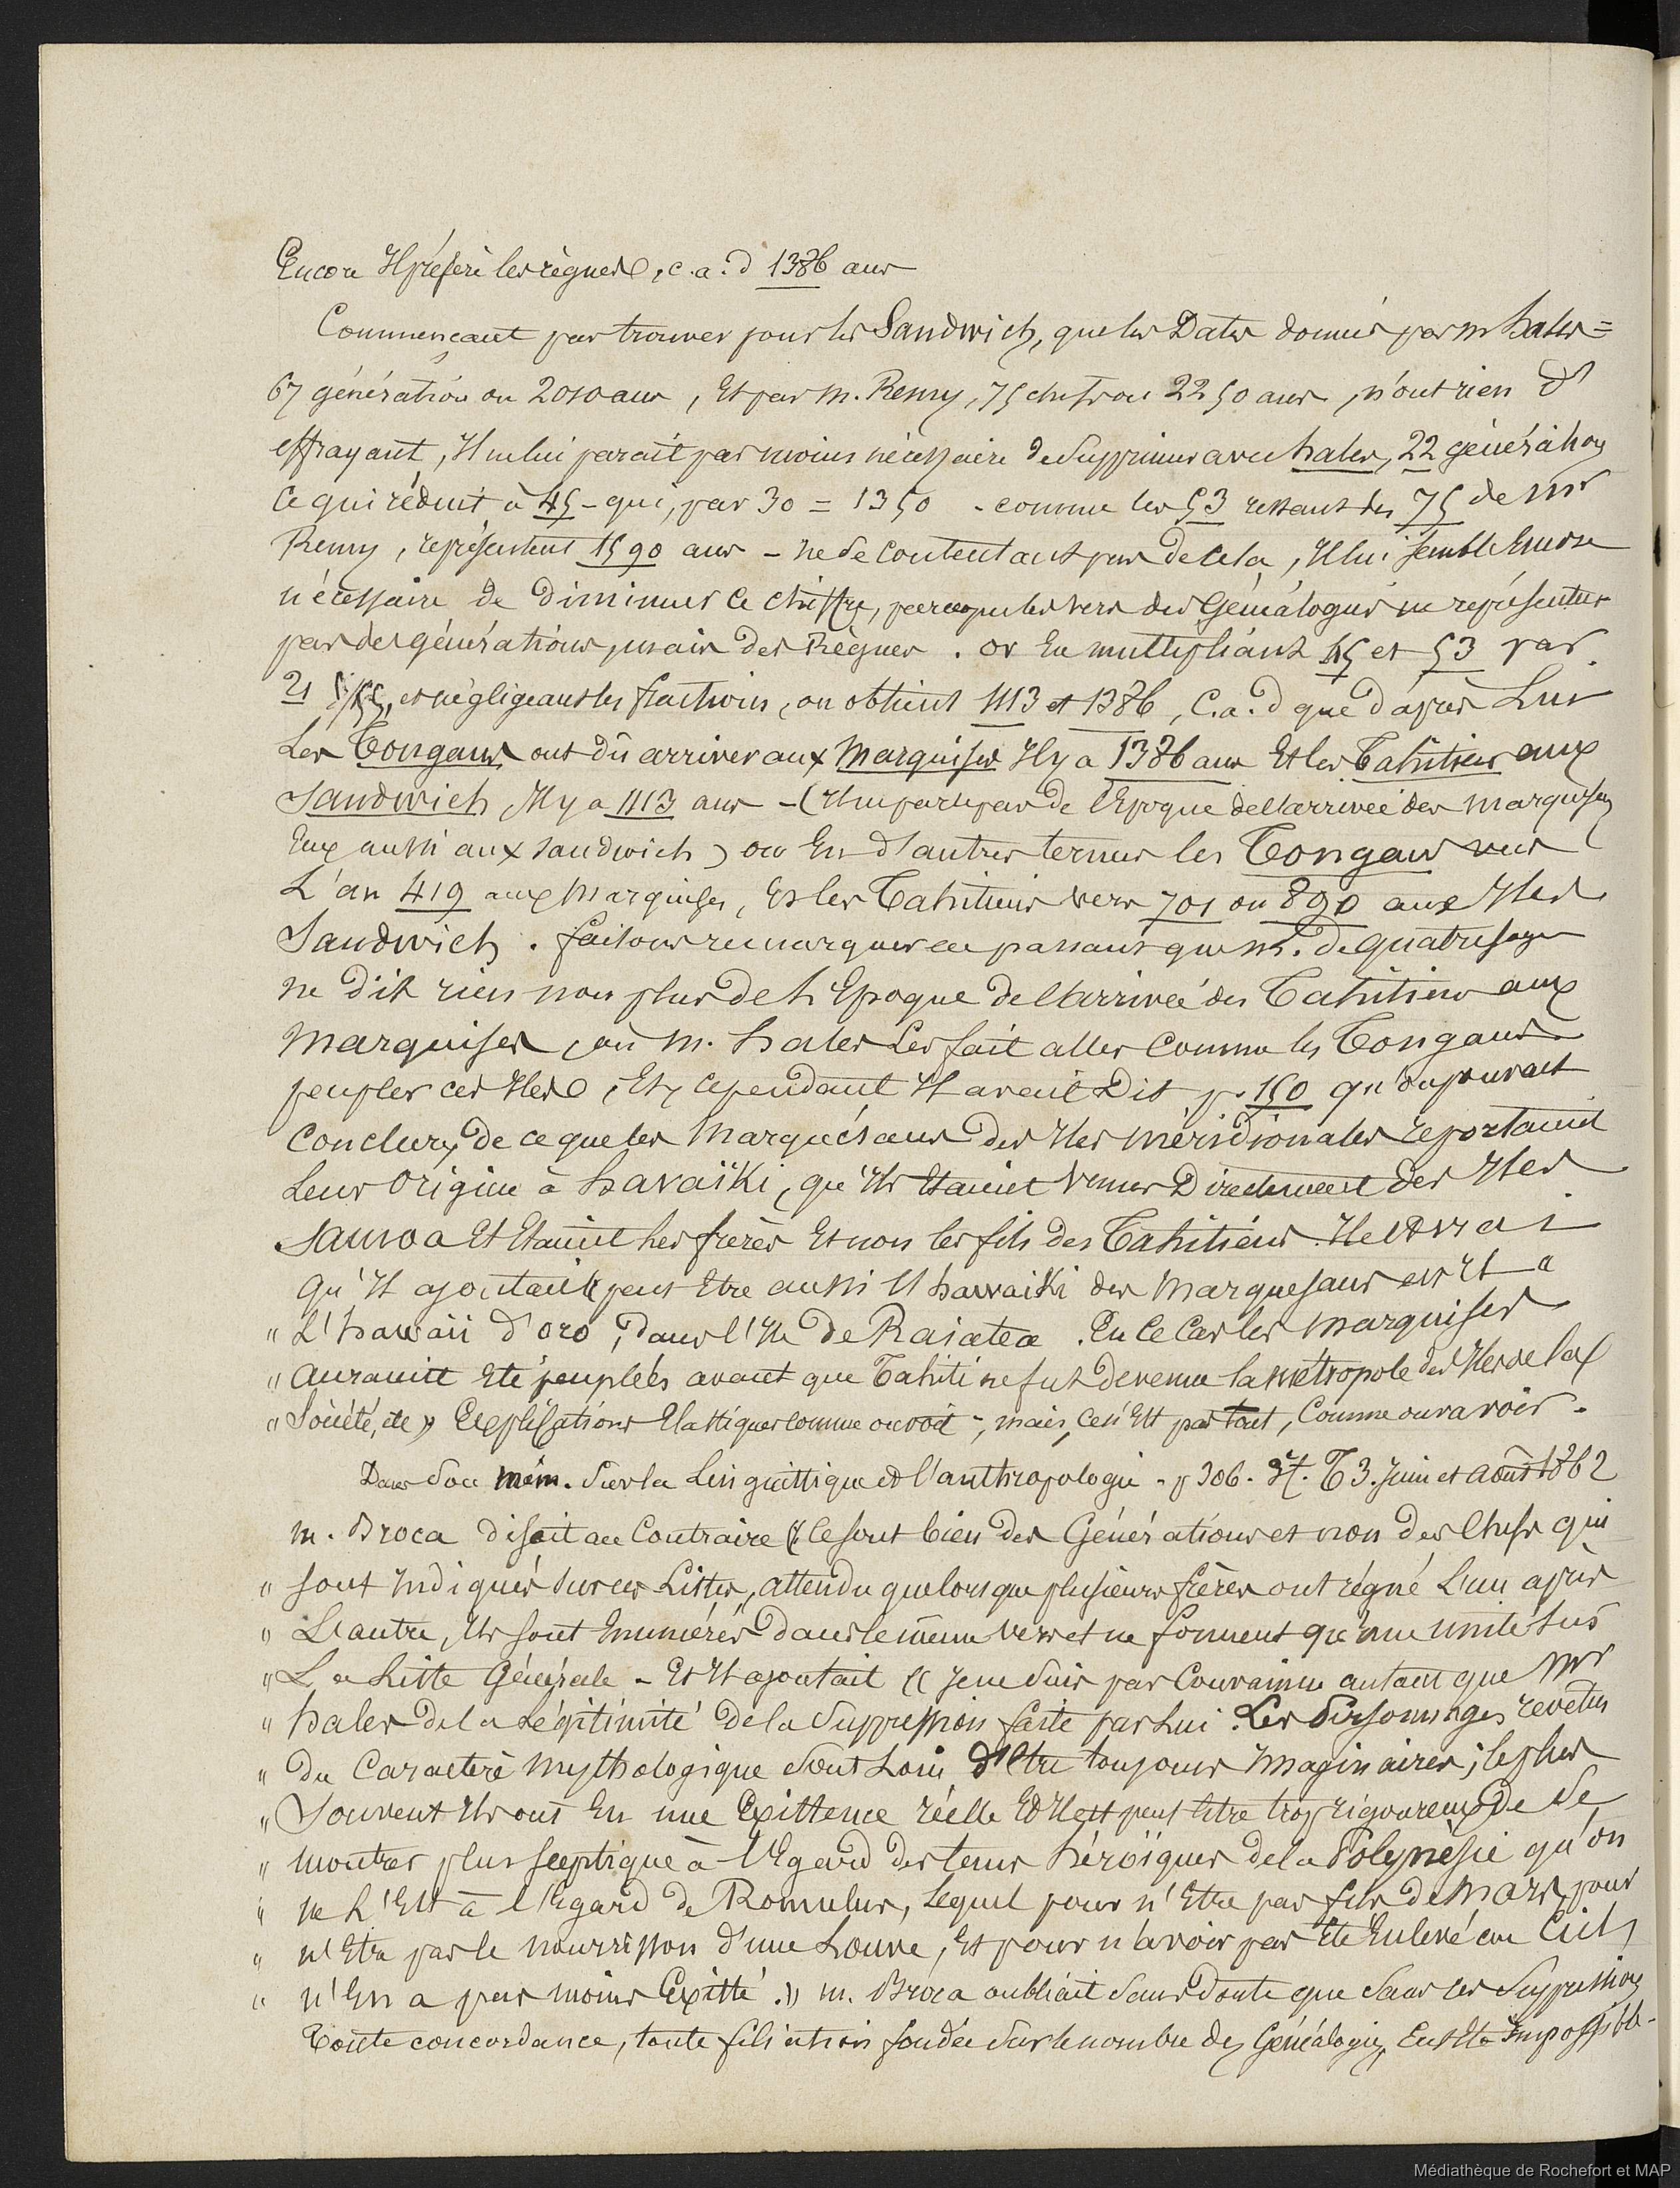 Encore Il préfère les règnes, c.a.d 1386 ans
Commençant par trouver pour les Sandwich, que les Dates donnés par m hales =
67 génération ou 2010 ans, Et par M. Remy, 75 chefs ou 2250 ans, n'ont rien d'
effrayant, Il ne lui parait pas moins nécessaire de Supprimer avec hales, 22 générations
Ce qui réduit à 45 - qui, par 30 = 1350 - comme les 53 restant des 75 de Mr
Remy, représentent 1590 ans - ne se contentant pas de cela, Il lui semble Encore
nécessaire de diminuer ce chiffre, parceque les vers des Généalogies ne représentent
pas des générations, mais des Règnes. Or En multipliant 45 et 53 par
21 et négligeant les fractions, on obtient 1113 et 1386, C.a.d que d'après Lui
Les Tongans ont dû arriver aux Marquises Il y a 1386 ans Et les Tahitiens aux
Sandwich Il y a 1113 ans - (Il ne parle pas de l'Epoque de l'arrivée des marquisiens
Eux aussi aux Sandwich) ou En d'autres termes les Tongans vers
L'an 419 aux Marquises, Et les Tahitiens vers 701 ou 890 aux Iles
Sandwich. faisons remarquer en passant que M. de quatrefages
ne dit rien non plus de l'Epoque de l'arrivée des Tahitiens aux
Marquises, où M. hales Les fait aller Comme les Tongans
peupler ces Iles, Et, cependant Il avait Dit p. 150 qu'on pouvait
Conclure, de ce que les Marquésans des Iles méridionales reportaient
Leur Origine à havaïki, qu'Ils Etaient Venus Directement des Iles
Samoa Et Etaient les frères Et non les fils des Tahitiens. Il est vrai
qu'Il ajoutait (( peut Etre aussi l'havaiki des Marquesans est Il -"
" L'havaii d'oro, dans l'Ile de Raiatea. En ce Cas les Marquises
" Auraient Eté peuplées avant que Tahiti ne fut devenue la métropole des Iles de la
" Société, etc )) Explications Elastiques comme on voit -, mais, Ce n'Est pas tout, Comme on va voir.
Dans Son Mém. Sur la Linguistique et l'anthropologie - p 306. T 3. Juin et août 1862
m. Broca disait au Contraire (( Ce sont bien des Générations et non des Chefs qui
" sont Indiqués sur ces Listes, attendu que lorsque plusieurs frères ont régné L'un après
" L'autre, Ils sont Enumérés dans le même vers et ne forment qu'une unité sur
" La Liste Générale - Et Il ajoutait (( Je ne suis pas Convaincu autant que Mr
" hales de la Légitimité de la Suppression faite par Lui. Les Personnages revetus
" du Caractère Mythologique sont Loin d'Etre toujours Imaginaires ; le plus
" Souvent Ils ont Eu une Existence réelle Et Il est peut Etre trop rigoureux de se
" montrer plus sceptique à l'Egard des tems héroïques de la Polynésie qu'on
" ne L'Est à l'Egard de Romulus, Lequel pour n'Etre pas fils de Mars, pour
" n'Etre pas le nourrisson d'une Louve, Et pour n'avoir pas Eté Enlevé au Ciel,
" n'En a pas moins Existé. )) m. Broca oubliait sans doute que Sans les Suppressions
Toute concordance, toute filiation fondée Sur le nombre des Généalogies, Eut Eté Impossible -
Médiathèque de Rochefort et MAP